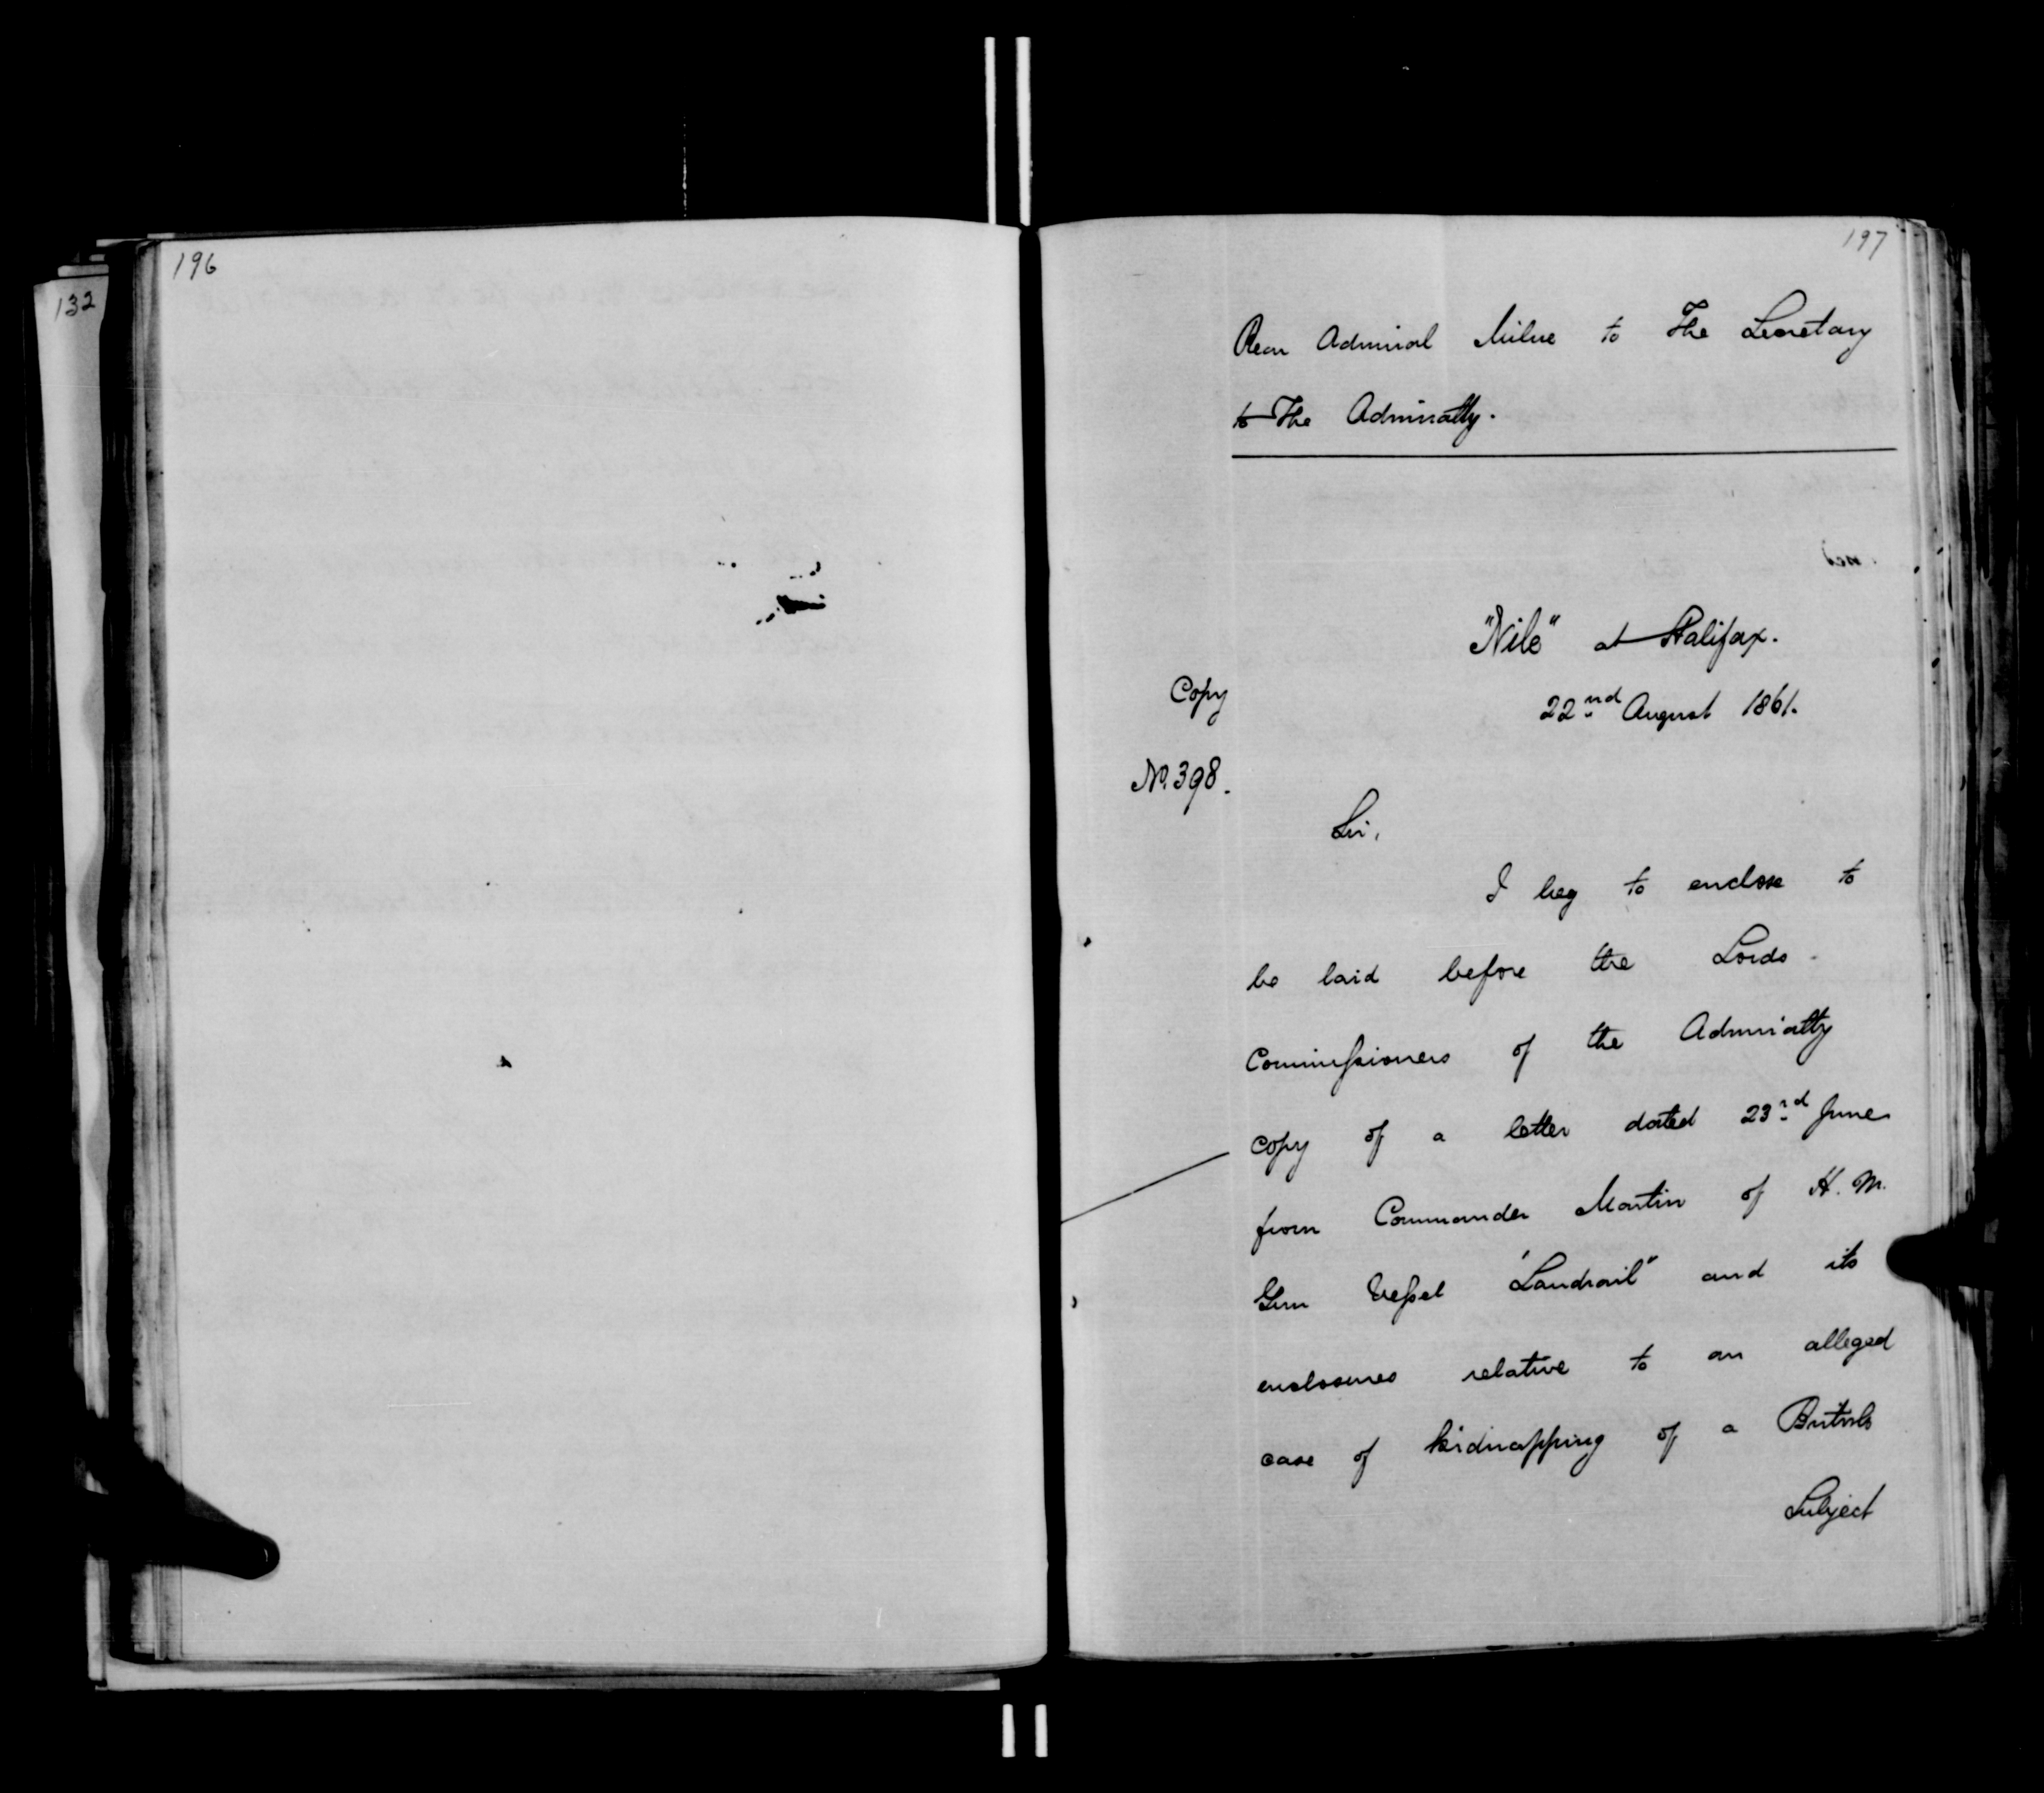 196
132
197
Rear Admiral Milne to The Secretary
to The Admiralty.
"Nile" at Halifax.
Copy
22nd August 1861.
No. 398.
Sir,
I beg to enclose to
be laid before the Lords
Commissioners of the Admiralty
copy of a letter dated 23rd June
from Commander Martin of H. M.
Gun Vessel "Landrail" and its
enclosures relative to an alleged
case of kidnapping of a British
Subject